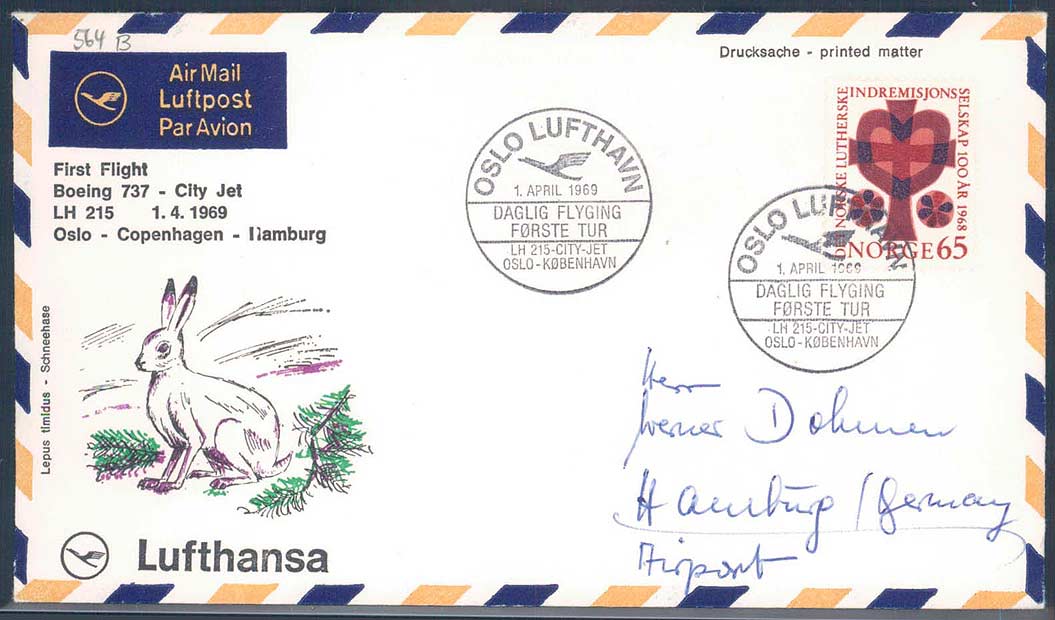 564 B
Air Mail
Luftpost
Par Avion
Drucksache - printed matter
First Flight
Boeing 737 - City Jet
LH 215 1. 4. 1969
Oslo - Copenhagen - Hamburg
OSLO LUFTHAVN
1. APRIL 1969
DAGLIG FLYGING
FØRSTE TUR
LH 215-CITY-JET
OSLO-KØBENHAVN
DEN NORSKE LUTHERSKE INDREMISJONS SELSKAP 100 ÅR 1968
NORGE 65
OSLO LUFTHAVN
1. APRIL 1969
DAGLIG FLYGING
FØRSTE TUR
LH 215-CITY-JET
OSLO-KØBENHAVN
Lepus timidus - Schneehase
Herr
Werner Dohmen
Hamburg / Germany
Airport
Lufthansa